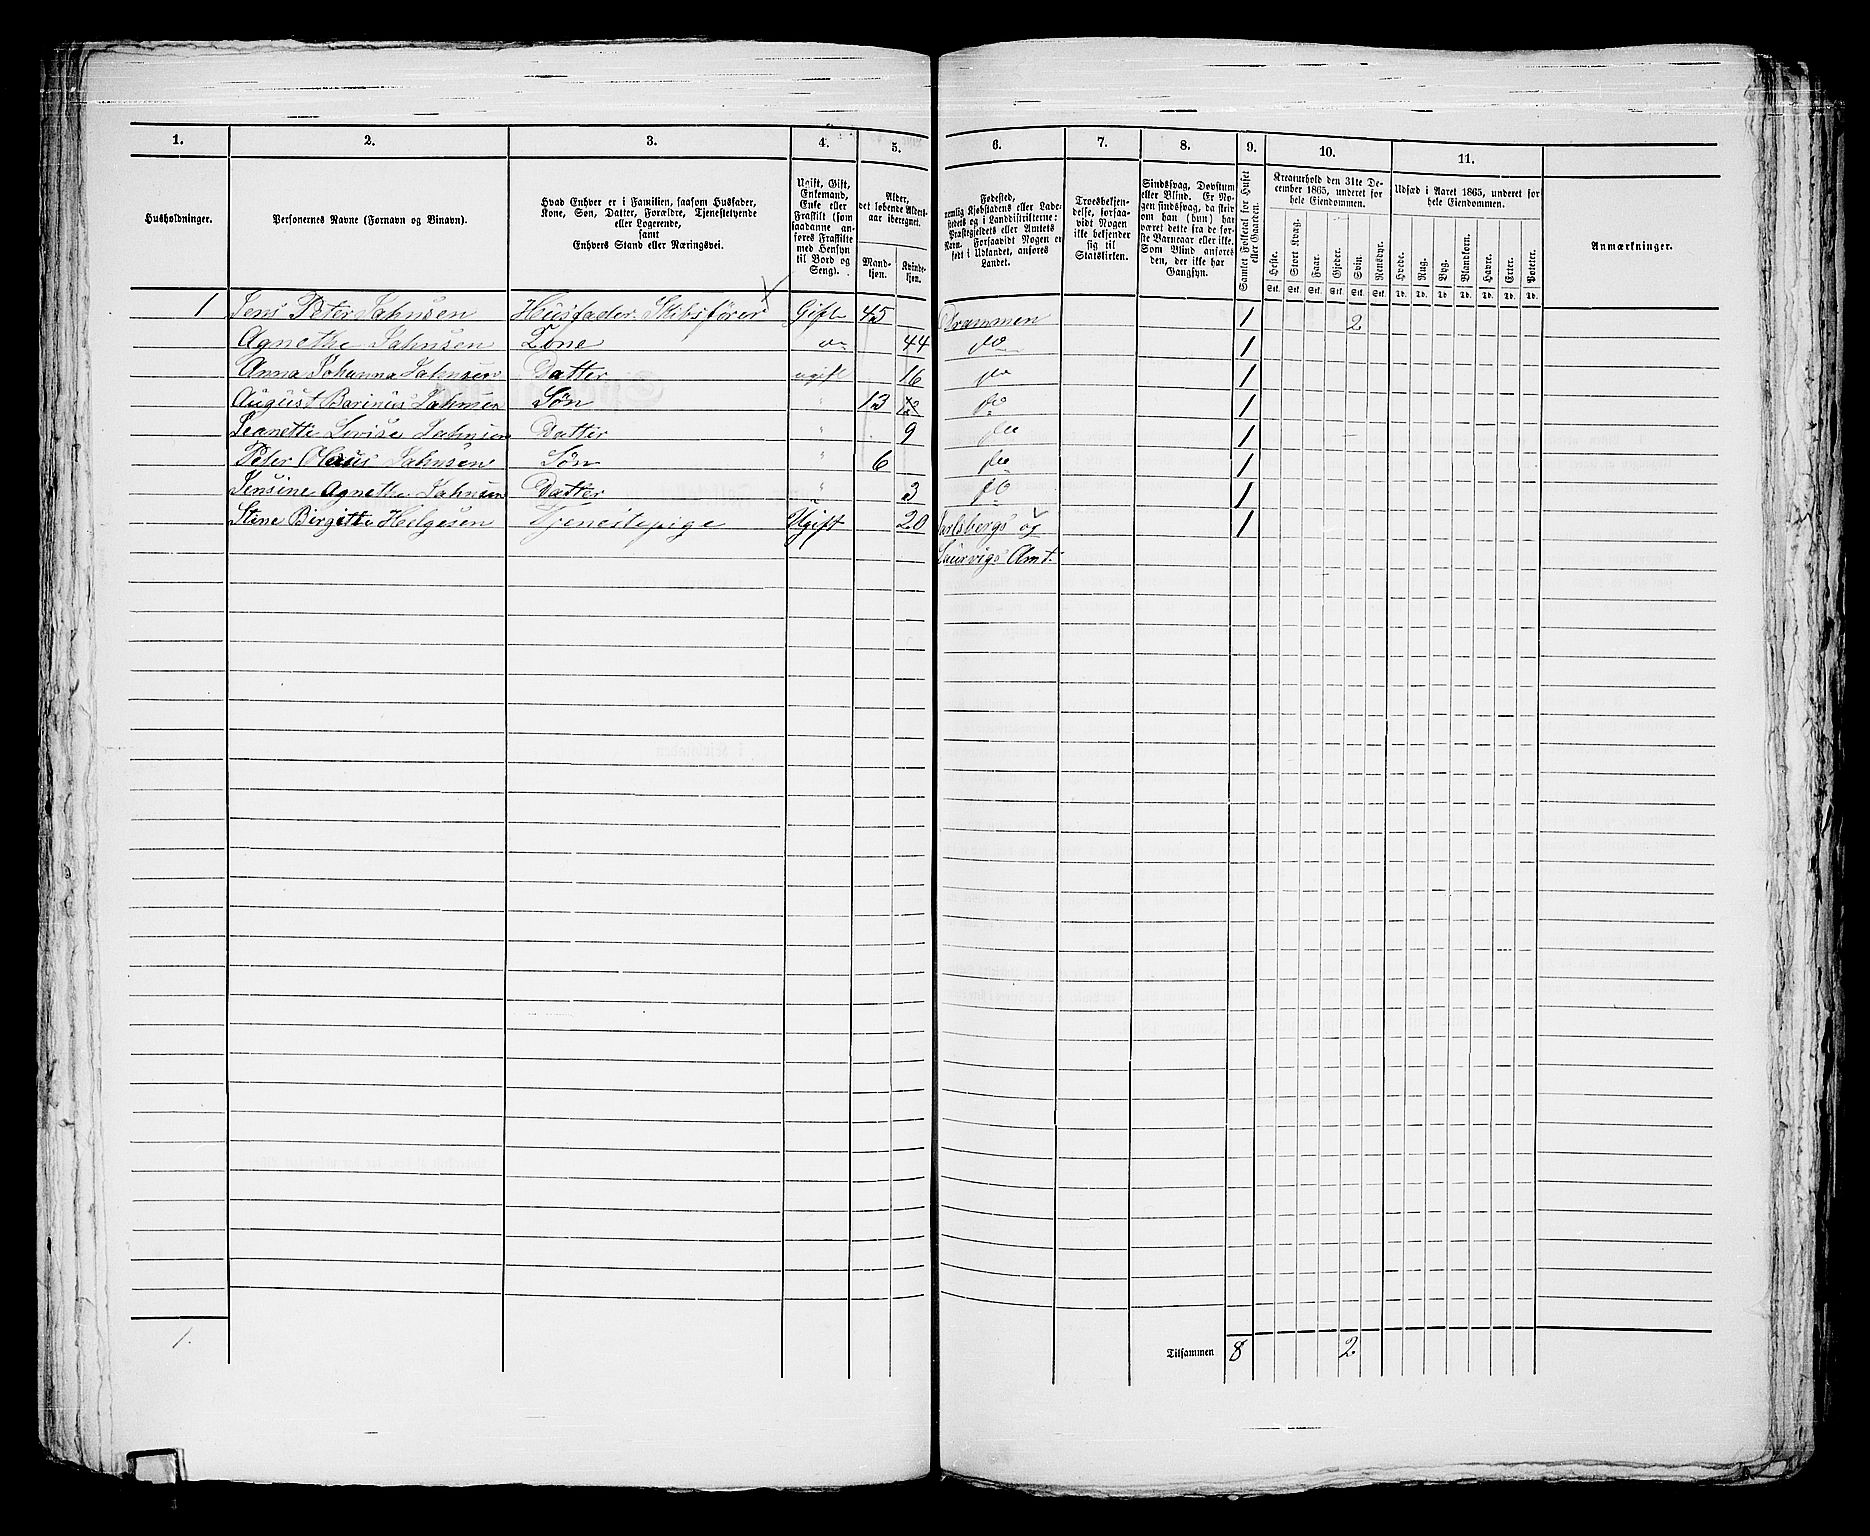 1. 2. 3. 4. 5. 6. 7. 8. 9. 10. 11.
Husholdninger.
Personernes Navne (Fornavn og Binavn).
Hvad Enhver er i Familien, saasom Husfader,
Kone, Søn, Datter, Forældre, Tjenestetyende
eller Logerende,
samt
Enhvers Stand eller Næringsvei.
Ugift, Gift,
Enkemand,
Enke eller
Fraskilt (som
saadanne an-
føres Fraskilte
med Hensyn
til Bord og
Seng).
Alder,
det løbende Alders-
aar iberegnet.
Mand-
kjøn.
Kvinde-
kjøn.
Fødested,
nemlig Kjøbstadens eller Lade-
stedets og i Landdistrikterne:
Præstegjeldets eller Amtets
Navn. Forsaavidt Nogen er
født i Udlandet, anføres
Landet.
Troesbekjen-
delse, forsaa-
vidt Nogen
ikke bekjender
sig til
Statskirken.
Sindssvag, Døvstum
eller Blind. Er No-
gen sindssvag, da skri-
ves om han (hun) har
været dette fra de før-
ste Barneaar eller ikke.
Som Blind ansøres
den, der ikke har
Gangsyn.
Samlet Folketal for Huset
eller Gaarden.
Kreaturhold den 31te De-
cember 1865, underet for
hele Eiendommen.
Heste. Stort Kvæg. Faar. Gjeder. Svin. Rensdyr.
Stk. Stk. Stk. Stk. Stk. Stk.
Udsæd i Aaret 1865, underet for
hele Eiendommen.
Hvede. Rug. Byg. Blandkorn. Havre. Erter. Poteter.
Td. Td. Td. Td. Td. Td. Td.
Anmærkninger.
1 Jens Peter Jahnsen Huusfader. Skibsfører Gift 45 Drammen 1 2
Agnethe Jahnsen Kone do 44 do 1
Anna Johanna Jahnsen Datter ugift 16 do 1
August Barinus Jahnsen Søn " 13 do 1
Jeanette Lovise Jahnsen Datter " 9 do 1
Peter Olaus Jahnsen Søn " 6 do 1
Jensine Agnethe Jahnsen Datter " 3 do 1
Stine Birgitte Helgesen Tjenestepige Ugift 20 Jarlsbergs og 1
Laurvigs Amt.
1.
Tilsammen 8 2